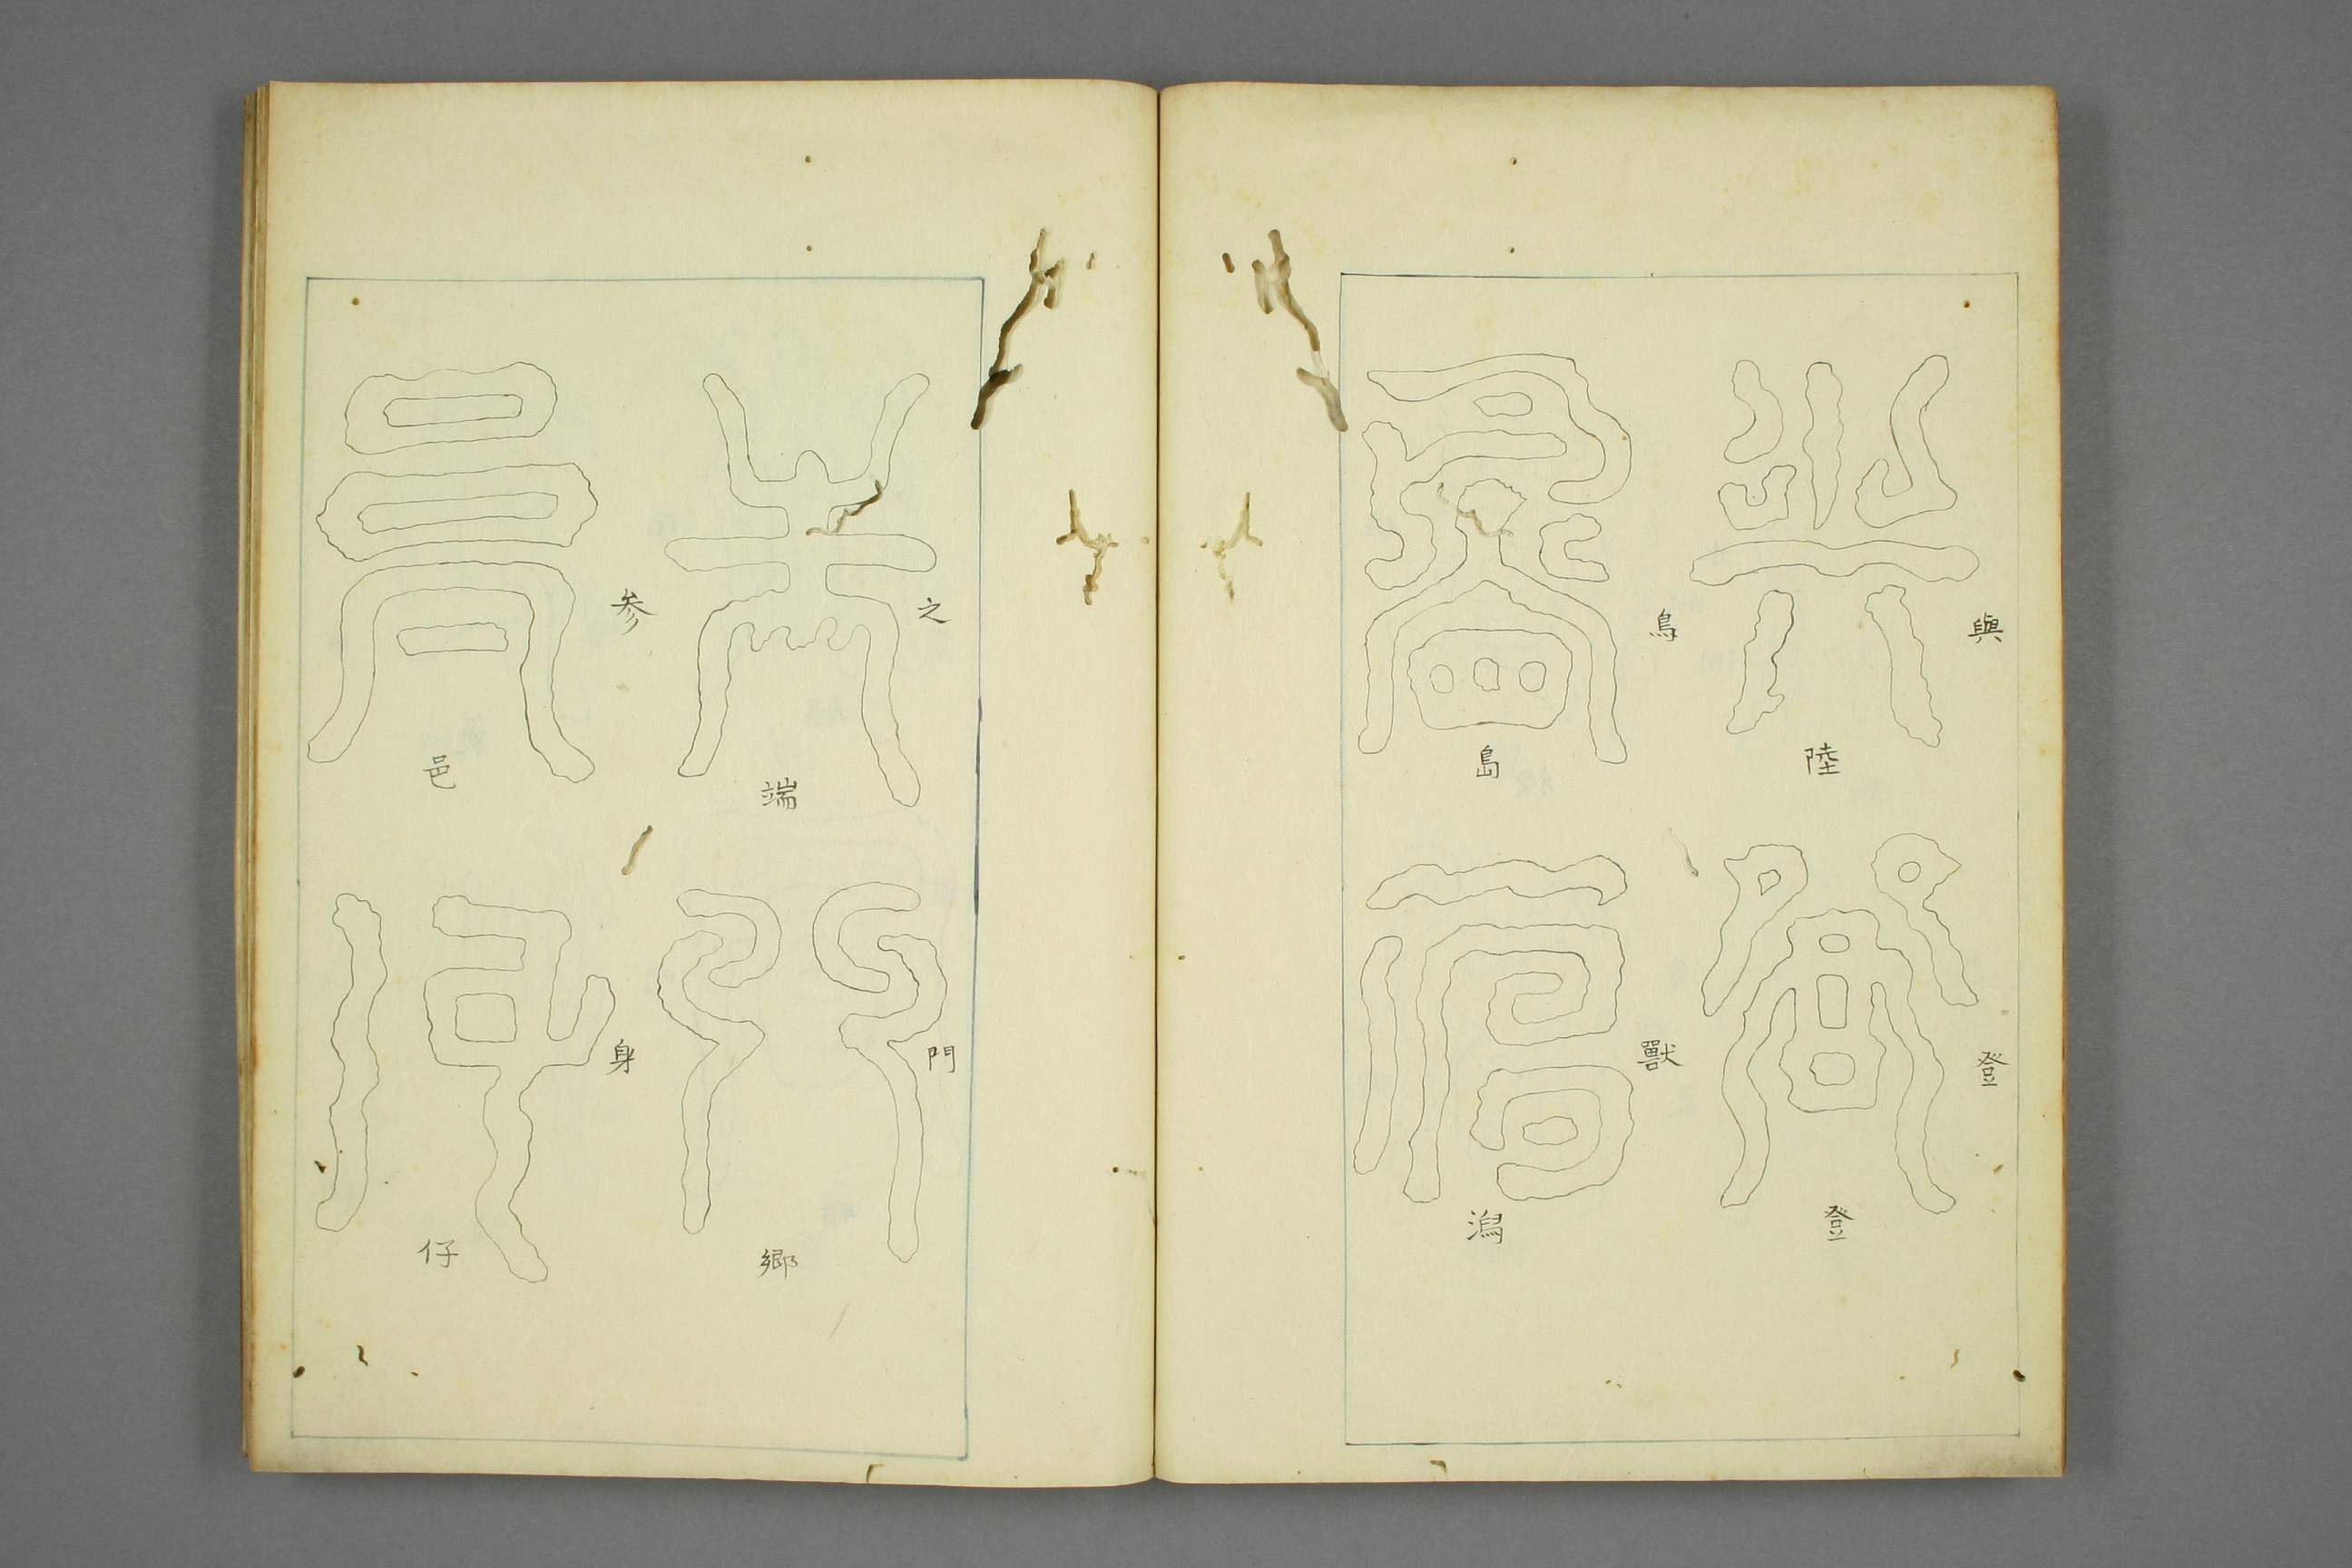 與
陸
登
登
鳥
島
獸
潟
之
端
門
鄉
参
邑
身
仔